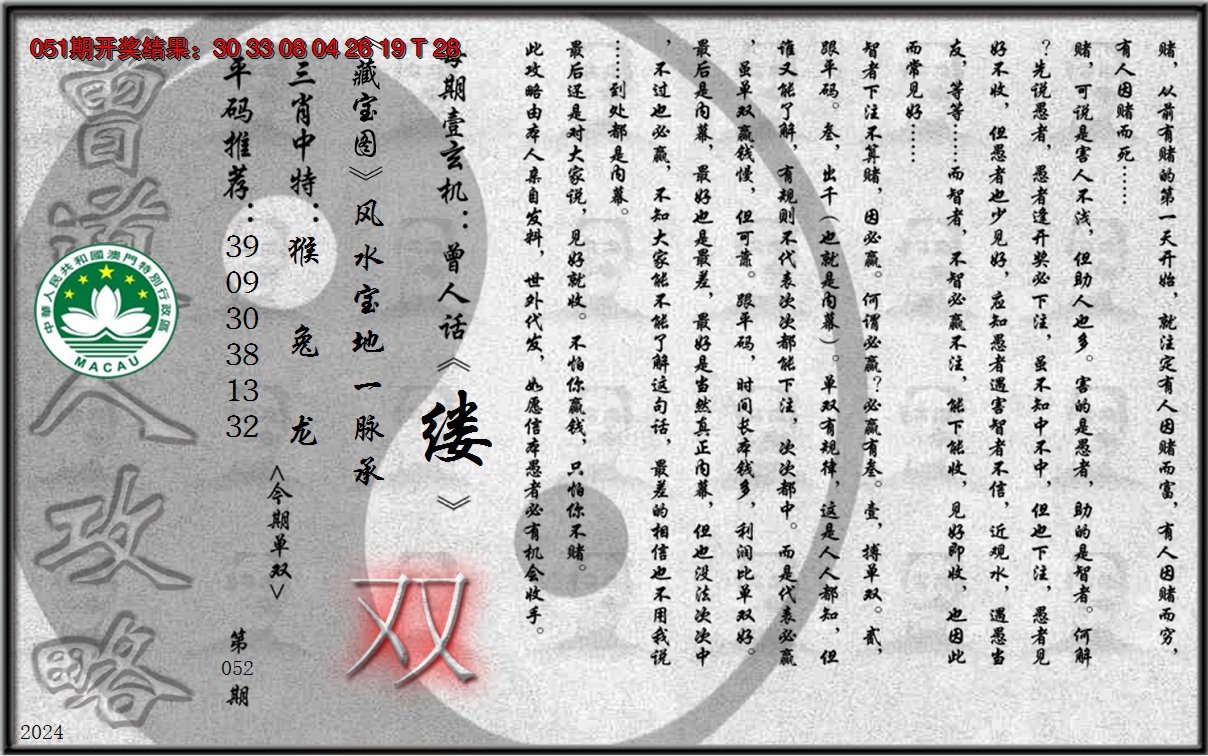 051期开奖结果：30 33 08 04 26 19 T 28
赌，从前有赌的第一天开始，就注定有人因赌而富，有人因赌而穷，
有人因赌而死……
赌，可说是害人不浅，但助人也多。害的是愚者，助的是智者。何解
？先说愚者，愚者逢开奖必下注，虽不知中不中，但也下注，愚者见
好不收，但愚者也少见好，应知愚者遇害智者不信，近观水，遇愚当
友，等等……而智者，不智必赢不注，能下能收，见好即收，也因此
而常见好……
智者下注不算赌，因必赢。何谓必赢？必赢有叁。壹，搏单双。贰，
跟平码。叁，出千（也就是内幕）。单双有规律，这是人人都知，但
谁又能了解，有规则不代表次次都能下注，次次都中。而是代表必赢
，虽单双赢钱慢，但可靠。跟平码，时间长本钱多，利润比单双好。
最后是内幕，最好也是最差，最好是当然真正内幕，但也没法次次中
，不过也必赢，不知大家能不能了解这句话，最差的相信也不用我说
……到处都是内幕。
最后还是对大家说，见好就收。不怕你赢钱，只怕你不赌。
此攻略由本人亲自发料，世外代发，如愿信本愚者必有机会收手。
每期壹玄机：曾人话《缕》
《藏宝图》风水宝地一脉承
双
三肖中特：猴 兔 龙
<今期单双>
平码推荐：39 09 30 38 13 32
第052期
曾道人攻略
中華人民共和國澳門特別行政區
MACAU
2024